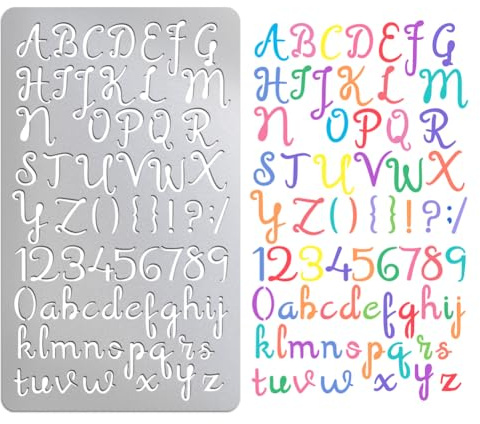 ABCDEFG
HIJKL M
N OPQR
STUVWX
YZ(){}!?:/
123456789
0abcdefghij
klmnopqrs
tuvw xyz
ABCDEFG
HIJKL M
N OPQR
STUVWX
YZ(){}!?:/
123456789
0abcdefghij
klmnopqrs
tuvw xyz